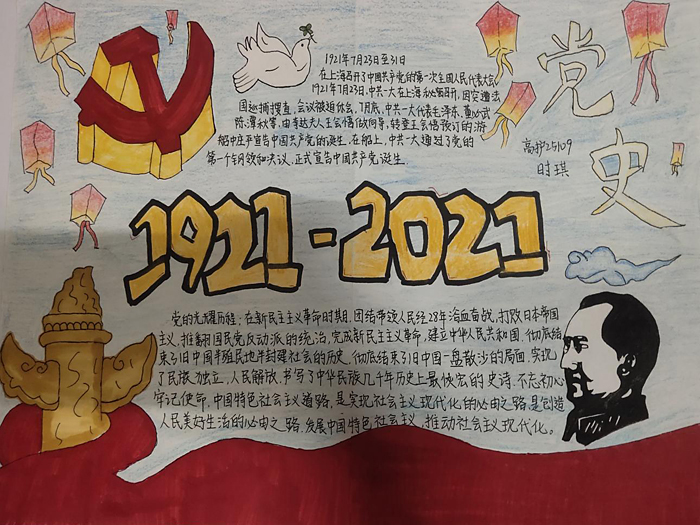 1921年7月23日至31日
在上海召开了中国共产党的第一次全国人民代表大会
1921年7月23日,中共一大在上海秘密召开,因突遭法
国巡捕搜查,会议被迫休会,7月底,中共一大代表毛泽东,董必武
陈潭秋等,由李达夫人王会悟做向导,转登王会悟预订的游
船中庄严宣告中国共产党的诞生,在船上,中共一大通过了党的
第一个纲领和决议,正式宣告中国共产党诞生.
党
史
高护25109
时琪
1921-2021
党的光耀历程:在新民主主义革命时期,团结带领人民经28年浴血奋战,打败日本帝国
主义,推翻国民党反动派的统治,完成新民主主义革命,建立中华人民共和国,彻底结
束了旧中国半殖民地半封建社会的历史,彻底结束了旧中国一盘散沙的局面,实现
了民族独立,人民解放,书写了中华民族几千年历史上最恢宏的史诗.不忘初心
牢记使命,中国特色社会主义道路,是实现社会主义现代化的必由之路,是创造
人民美好生活的必由之路.发展中国特色社会主义,推动社会主义现代化。